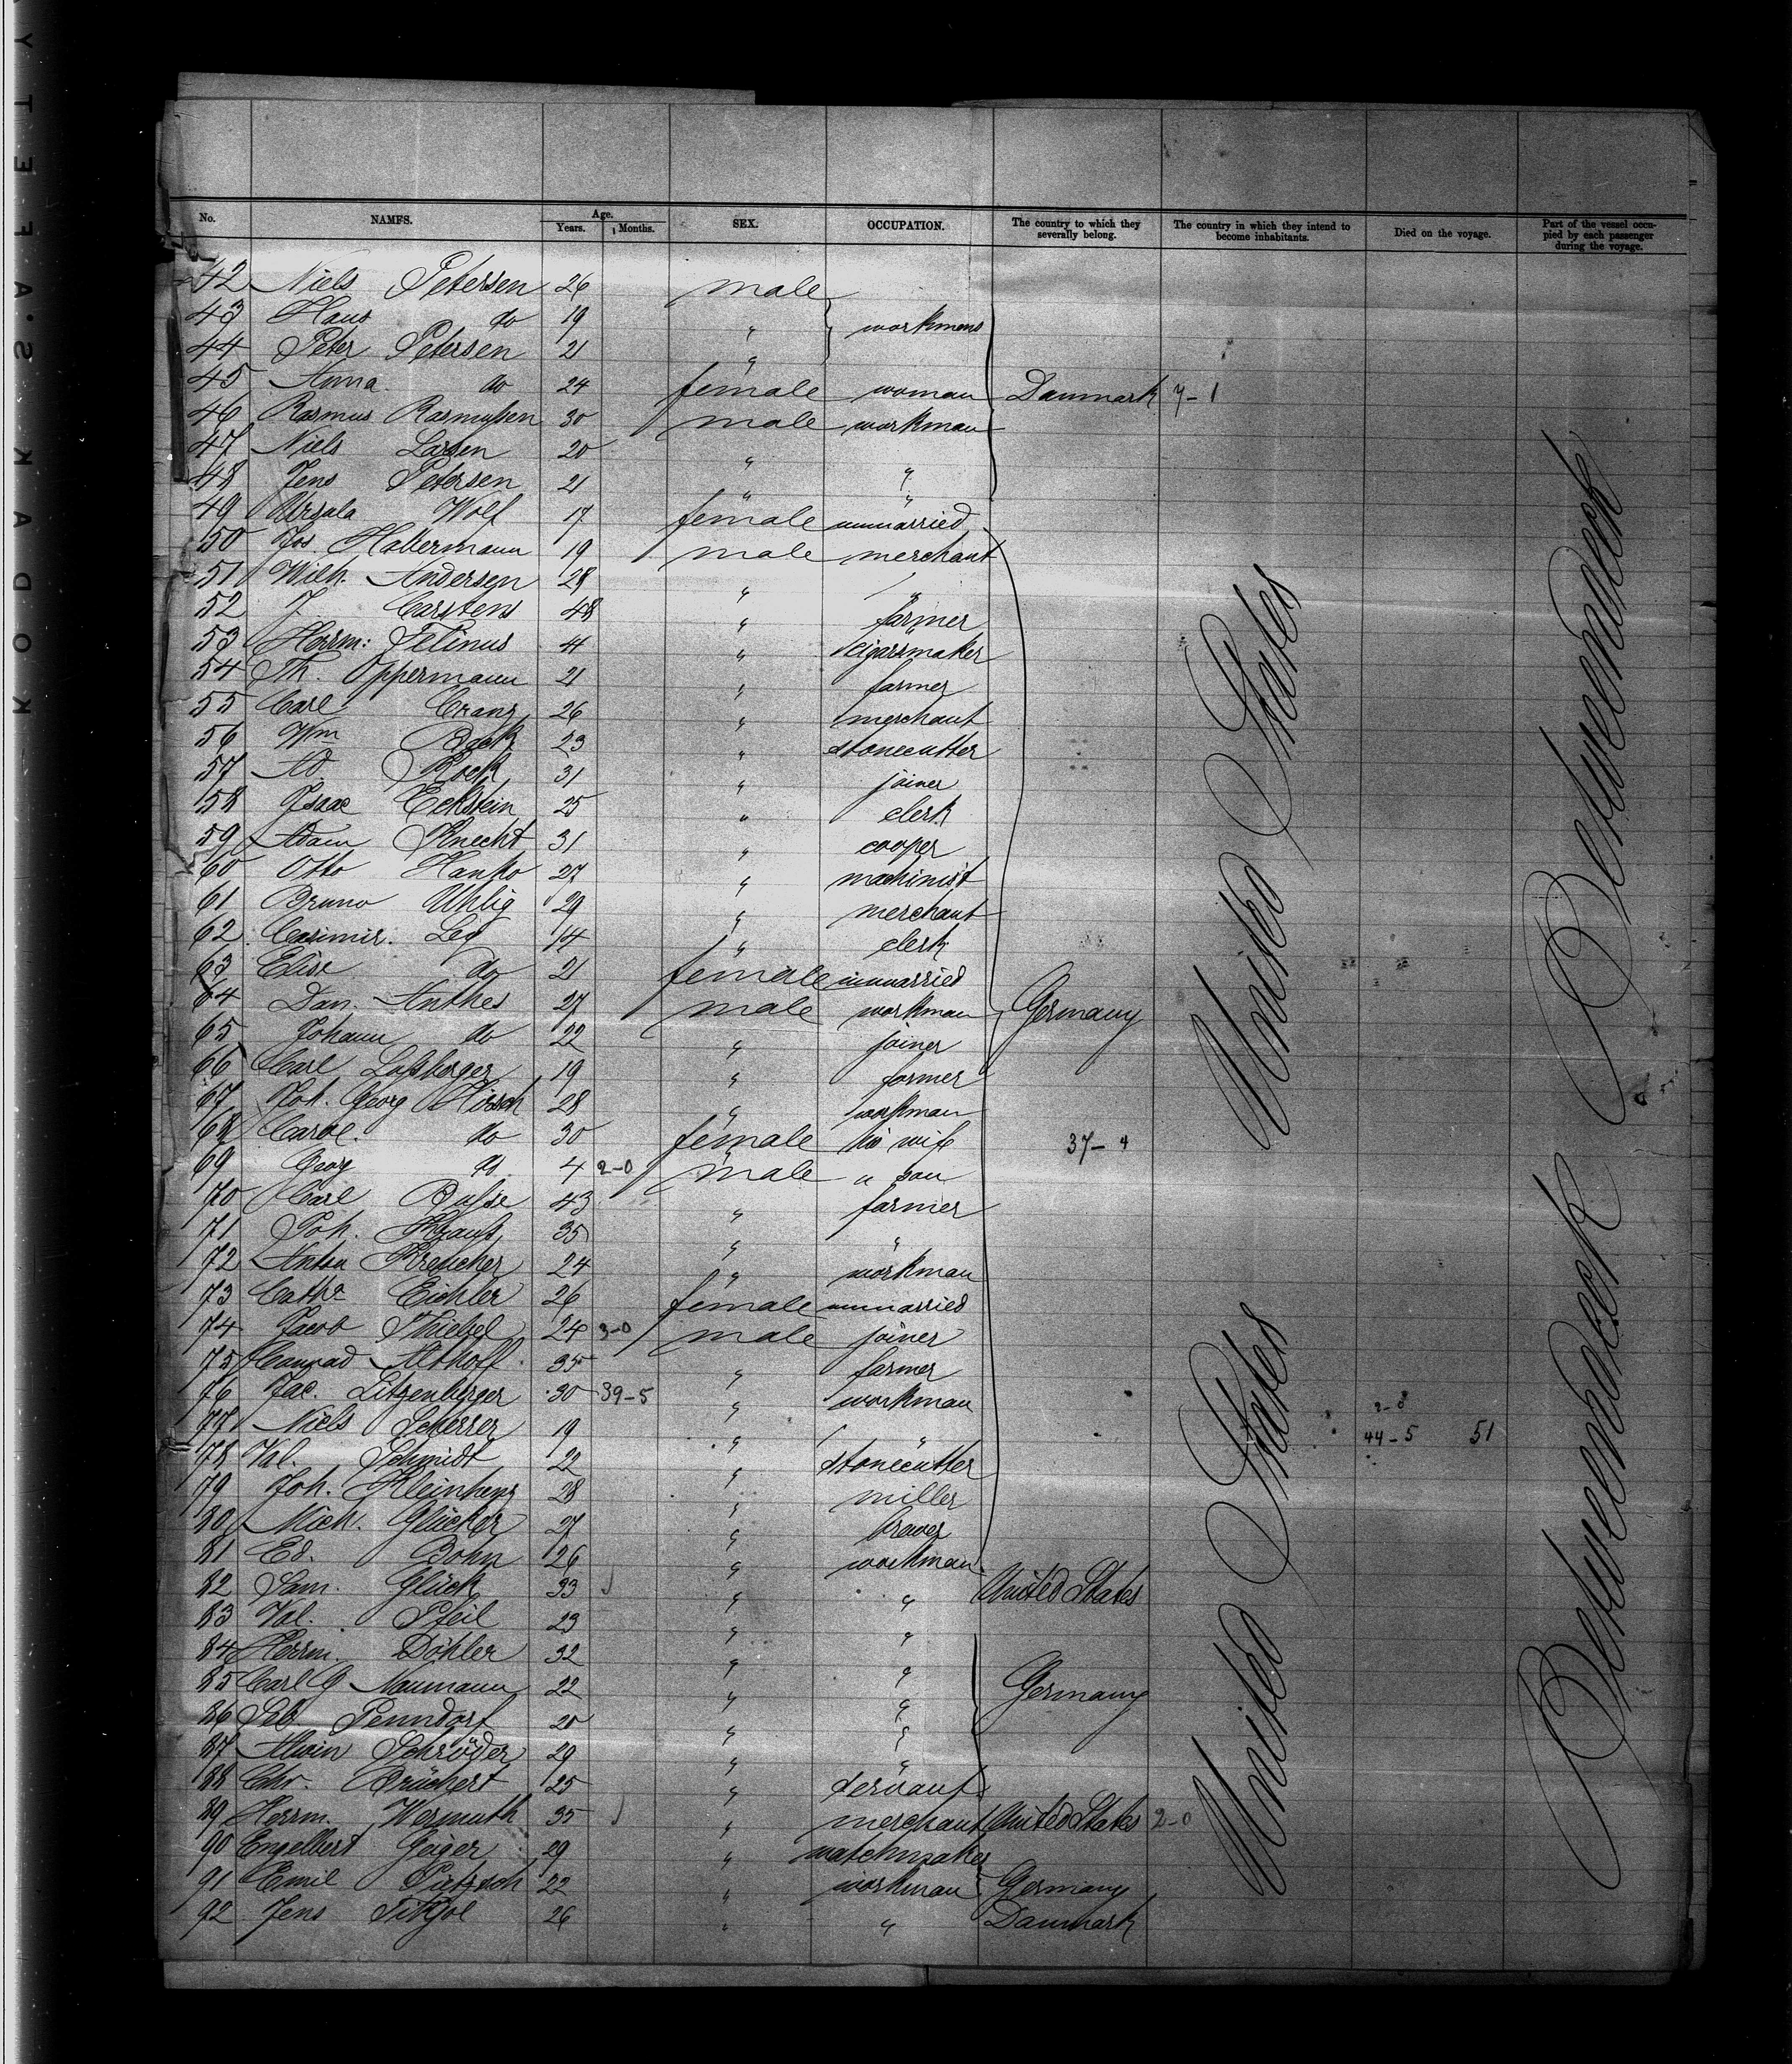 No. NAMES. Age. Years. Months. SEX. OCCUPATION. The country to which they severally belong. The country in which they intend to become inhabitants. Died on the voyage. Part of the vessel occupied by each passenger during the voyage.
42 Niels Petersen 26 male
43 Hans do 19 " workmens
44 Peter Petersen 21 "
45 Anna do 24 female woman Danmark 7-1
46 Rasmus Rasmussen 30 male workman
47 Niels Larsen 20 " "
48 Jens Petersen 21 " "
49 Ursala Wolf 17 female unmarried
50 Jos. Habermann 19 male merchant
51 Wilh. Andersen 28 " "
52 J Carstens 48 " farmer
53 Herrm: Felinus 4 " cigarsmaker
54 Th. Oppermann 21 " farmer
55 Carl Cranz 26 " merchant
56 Wm Back 23 " stonecutter
57 Ad Rock 31 " joiner
58 Isaac Eckstein 25 " clerk
59 Adam Knecht 31 " cooper
60 Otto Hanko 27 " machinist
61 Bruno Uhlig 29 " merchant
62 Casimir. Ley 14 " clerk
63 Elise do 21 female unmarried
64 Dan. Anthes 27 male workman Germany
65 Johann do 22 " joiner
66 Carl Lossberger 19 " farmer
67 Joh. Georg Hirsch 28 " workman
68 Carol. do 30 female his wife 37-4
69 Georg do 4 2-0 male " son
70 Carl Busse 43 " farmer
71 Joh. Kraus 35 " "
72 Anton Kreucher 24 " workman
73 Catha Eichler 26 female unmarried
74 Jacob Thiebel 24 3-0 male joiner
75 Conrad Althoff 35 " farmer
76 Jac. Litzenberger 30 39-5 " workman
77 Niels Scherrer 19 " " 2-0 44-5 51
78 Val. Schmidt 22 " stonecutter
79 Joh. Kleinhenz 28 " miller
80 Mich. Glücker 27 " brewer
81 Ed. Bohn 26 " workman
82 Sam. Glück 33 " " United States
83 Val. Pfeil 23 " "
84 Herrm. Döhler 32 " "
85 Carl G Naumann 22 " " Germany
86 Seb Penndorf 20 " "
87 Alwin Schröder 29 " "
88 Chr. Brüchert 25 " servant
89 Herrm. Wermuth 35 " merchant United States 2-0
90 Engelbert Geiger 29 " watchmaker
91 Emil Pietzsch 22 " workman Germany
92 Jens 26 " " Danmark
United States
United States
Betweendeck
Betweendeck
KODAK SAFETY